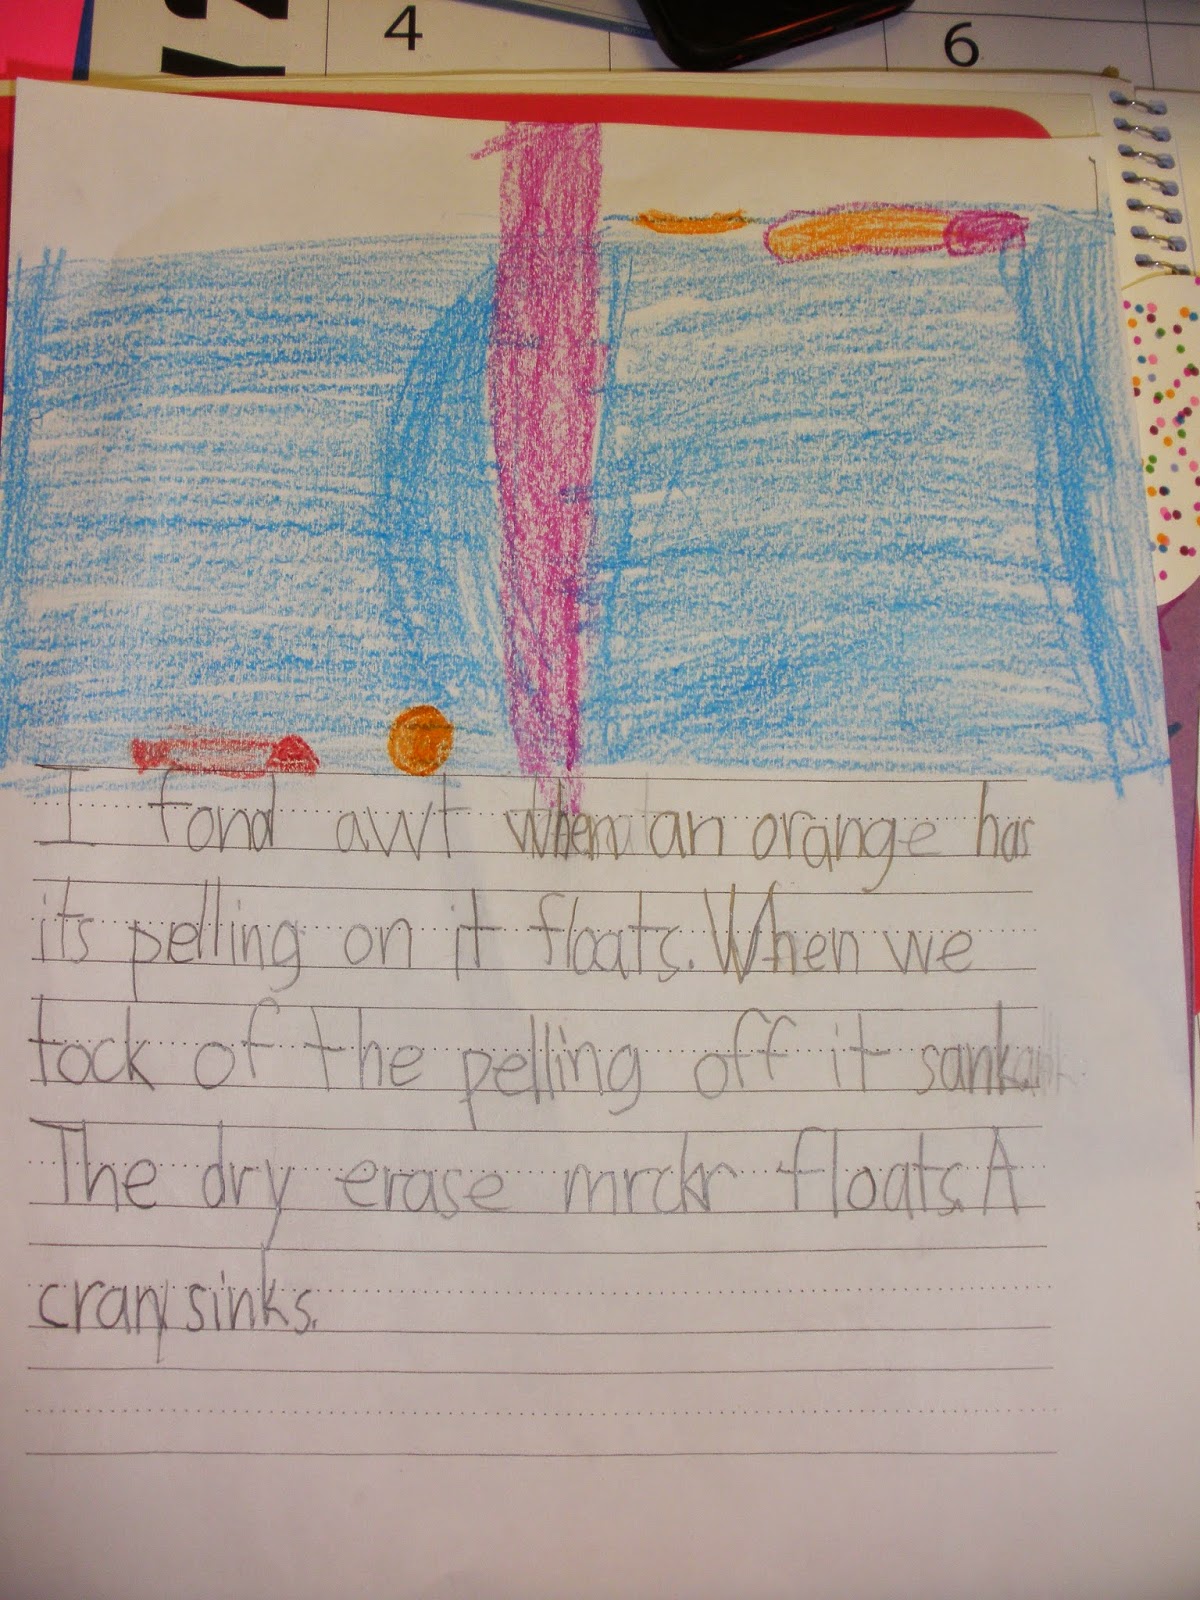 4
6
I fond awt when an orange has
its pelling on it floats. When we
tock of the pelling off it sank
The dry erase mrckr floats. A
cran sinks.